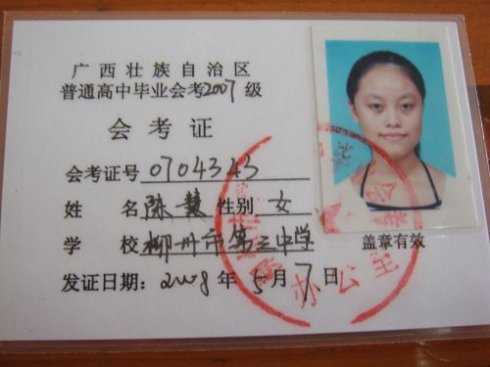 广西壮族自治区
普通高中毕业会考2007级
会考证
会考证号 0704343
姓名 陈慧 性别 女
学校 柳州市第三中学
发证日期:2008年5月7日
盖章有效
办公室